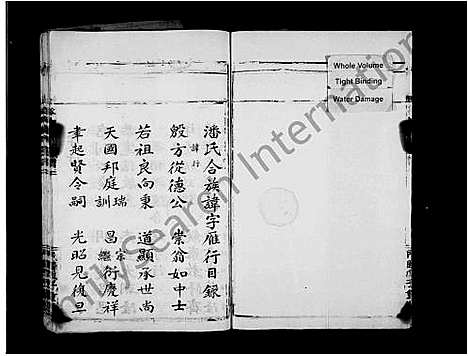 Whole Volume
Tight Binding
Water Damage
潘氏合族諱字雁行目錄
諱行
殷方從德公 崇翁如中士
若祖良向秉 道顯承世尚
天國邦庭瑞訓 昌宗繼衍慶祥
聿起賢令嗣 光昭見復旦
FamilySearch International